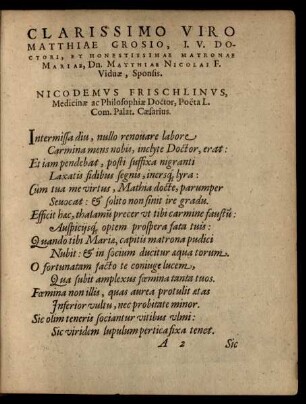 CLARISSIMO VIRO
MATTHIAE GROSIO, I. V. DO-
CTORI, ET HONESTISSIMAE MATRONAE
MARIAE, Dn. MATTHIAE NICOLAI F.
Viduæ, Sponsis.
NICODEMVS FRISCHLINVS,
Medicinæ ac Philosophiæ Doctor, Poëta L.
Com. Palat. Cæsarius.
Intermissa diu, nullo renouare labore
Carmina mens nobis, inclyte Doctor, erat:
Et iam pendebat, posti suffixa nigranti
Laxatis fidibus segnis, inersq́; lyra:
Cum tua me virtus, Mathia docte, parumper
Seuocat: & solito non sinit ire gradu.
Efficit hæc, thalamũ precer vt tibi carmine faustũ:
Auspicijsq́; optem prospera fata tuis:
Quando tibi Maria, capiti matrona pudici
Nubit: & in socium ducitur aqua torum.
O fortunatam facto te coniuge lucem,
Qua subit amplexus fœmina tanta tuos.
Fœmina non illis, quas aurea protulit ætas
Inferior vultu, nec probitate minor.
Sic olim teneris sociantur vitibus vlmi:
Sic viridem lupulum pertica fixa tenet.
A 2 Sic